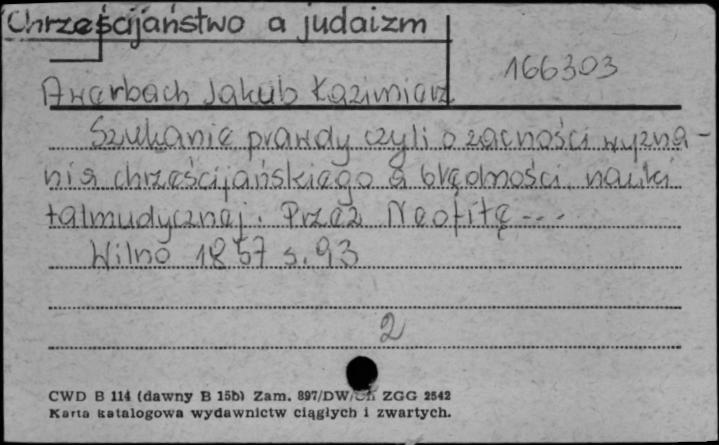 Chrześcijaństwo a judaizm
166303
Awerbach Jakub Kazimierz
Szukanie prawdy czyli o zacności wyzna-
nia chrześcijańskiego a błędności nauki
talmudycznej. Przez Neofitę ---
Wilno 1857 s. 93
2
CWD B 114 (dawny B 15b) Zam. 897/DW/ ZGG 2542
Karta katalogowa wydawnictw ciągłych i zwartych.